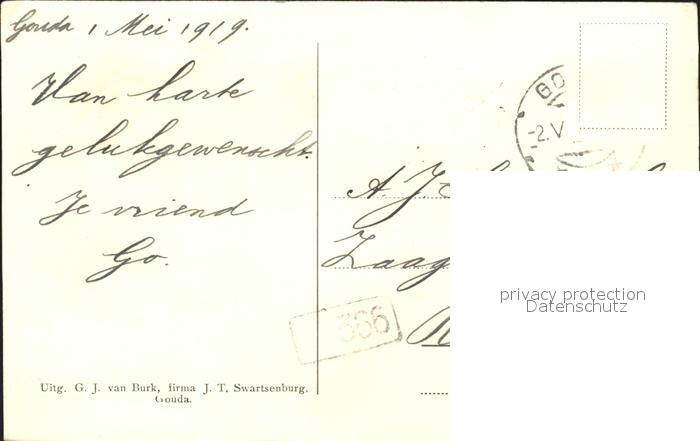 Gouda 1 Mei 1919.
Van harte
gelukgewenscht.
Je vriend
Go.
GO
-2.V
A. J.
Zaag
366
privacy protection
Datenschutz
Uitg. G. J. van Burk, firma J. T. Swartsenburg.
Gouda.